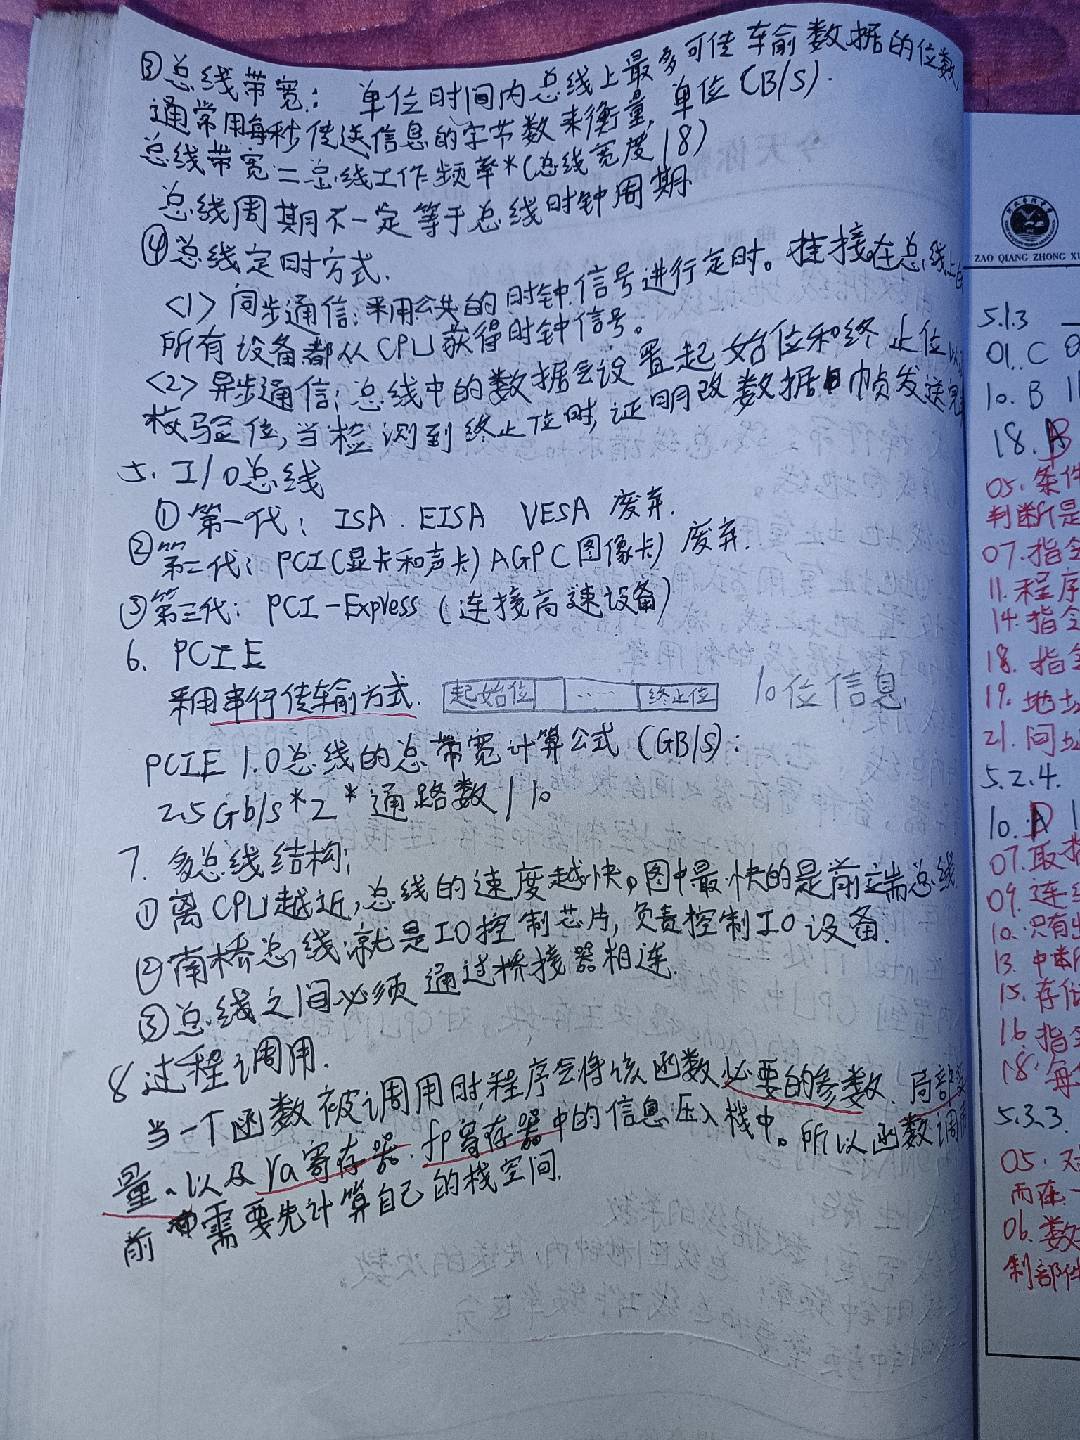 ③总线带宽: 单位时间内总线上最多可传输数据的位数,
通常用每秒传送信息的字节数来衡量,单位(B/S).
总线带宽=总线工作频率*(总线宽度/8)
总线周期不一定等于总线时钟周期
④总线定时方式.
<1>同步通信:采用公共的时钟信号进行定时。挂接在总线上的
所有设备都从CPU获得时钟信号。
<2>异步通信:总线中的数据会设置起始位和终止位
校验位,当检测到终止位时,证明改数据帧发送完
5. I/O总线
①第一代: ISA. EISA VESA 废弃.
②第二代: PCI(显卡和声卡) AGPC图像卡) 废弃.
③第三代: PCI-Express (连接高速设备)
6. PCIE
采用串行传输方式. 起始位 ... 终止位 10位信息
PCIE 1.0总线的总带宽计算公式(GB/S):
2.5Gb/s*2*通路数/10
7. 多总线结构:
①离CPU越近,总线的速度越快。图中最快的是前端总线
②南桥总线:就是IO控制芯片,负责控制IO设备.
③总线之间必须通过桥接器相连.
8 过程调用.
当一个函数被调用时,程序会将该函数必要的参数、局部变
量、以及ra寄存器.fp寄存器中的信息压入栈中。所以函数调用
前需要先计算自己的栈空间.
ZAO QIANG ZHONG XU
5.1.3
01. C
10. B 11
18. B
05. 条件
判断是
07. 指令
11. 程序
14. 指令
18. 指令
19. 地址
21. 间址
5.2.4.
10.
07. 取指
09. 连续
10. 只有出
13. 中断
15. 存储
16. 指令
18. 每
5.3.3
05. 对
而在一
06. 数
制部件